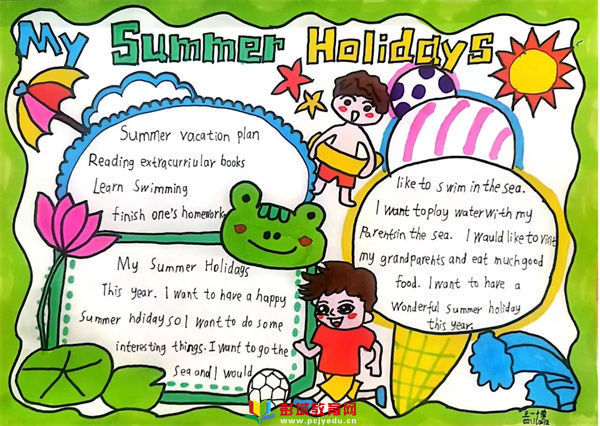 My Summer Holidays
Summer vacation plan
Reading extracurriular books
Learn Swimming
finish one's homework
My Summer Holidays
This year. I want to have a happy
Summer hdidaysoI want to do some
interesting things. I want to go the
sea and I would
like to swim in the sea.
I want toplay water with my
Parentsin the sea. I would like to visit
my grandparents and eat much good
food. I want to have a
wonderful summer holiday
this year.
www.pcjyedu.cn